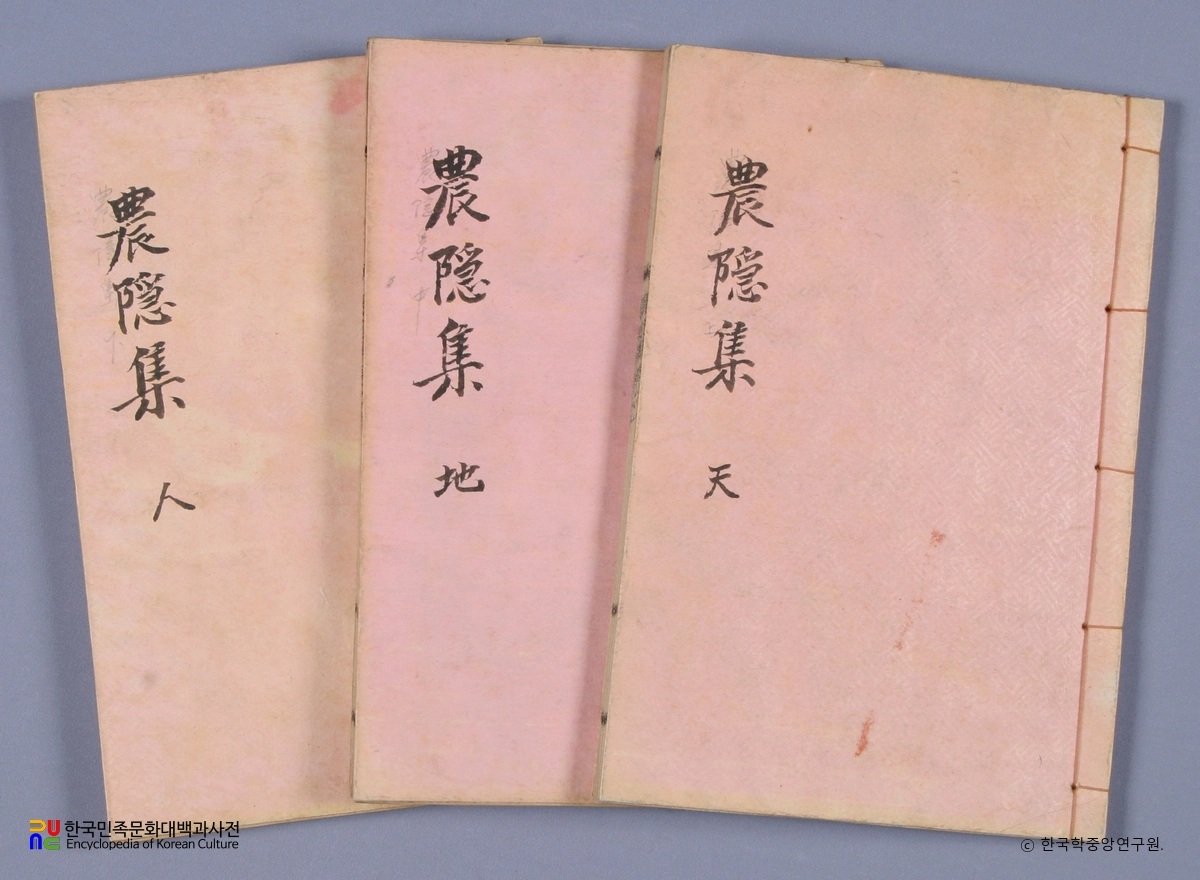 農隠集 天
農隠集 地
農隠集 人
한국민족문화대백과사전
Encyclopedia of Korean Culture
ⓒ 한국학중앙연구원.